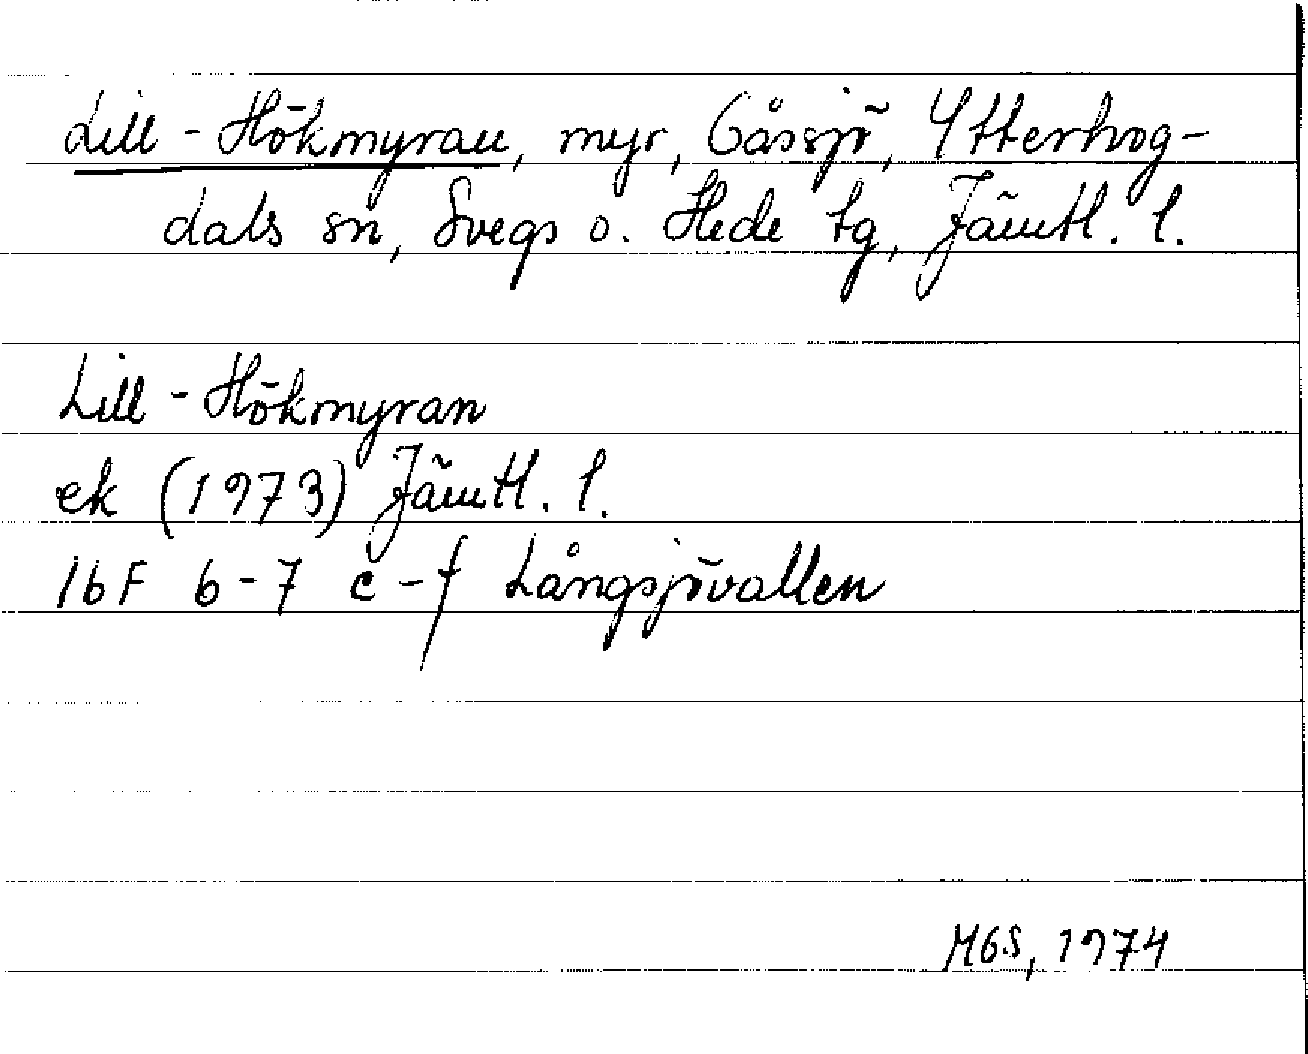 Lill-Hökmyran, myr, Gåssjö, Ytterhog-
dals sn, Svegs o. Hede tg, Jämtl. l.
Lill-Hökmyran
ek (1973) Jämtl. l.
16F 6-7 c-f Långsjövallen
MGS, 1974